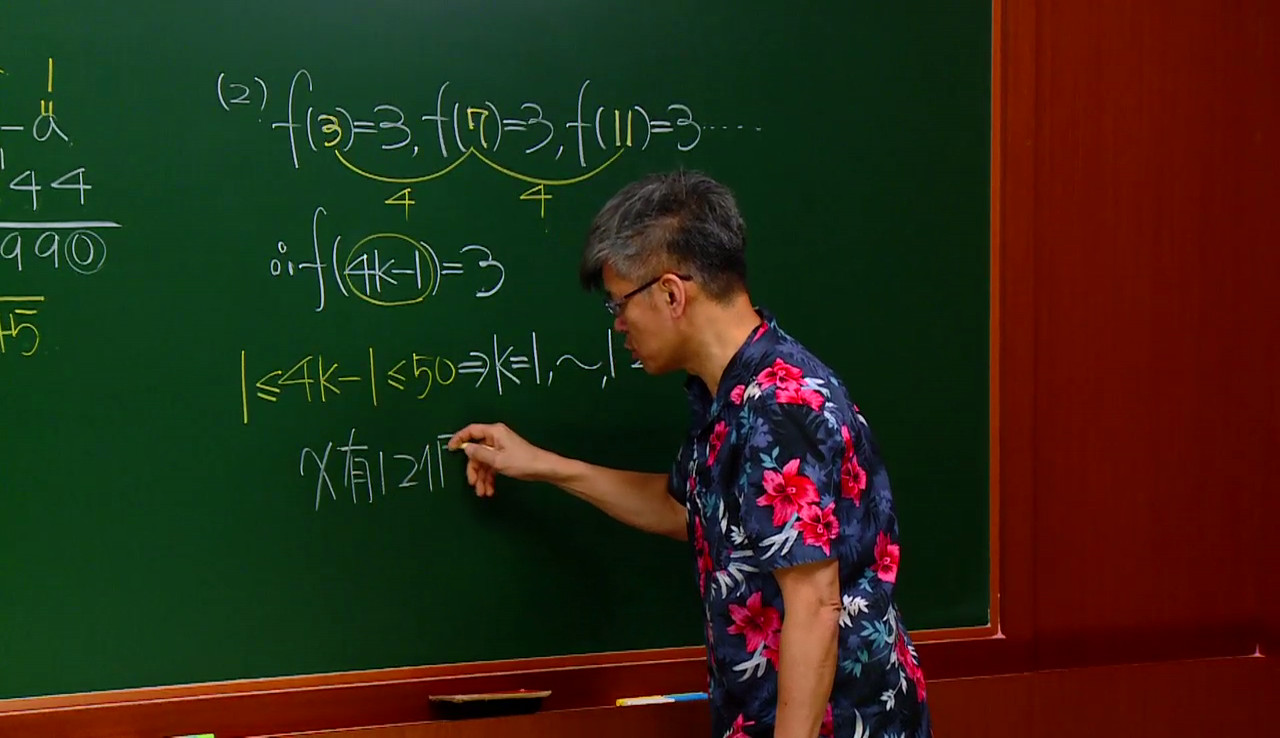 1
॥
-a
44
990
+5
(2) f(3)=3, f(7)=3, f(11)=3……
4 4
∴f(4k-1)=3
1≤4k-1≤50⇒k=1,~,1
x有12